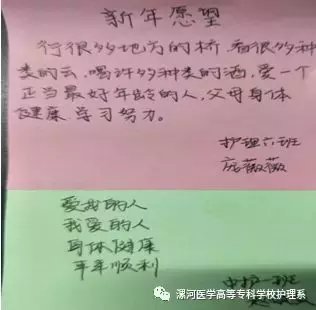 新年愿望
行很多地方的桥，看很多种
类的云，喝许多种类的酒，爱一个
正当最好年龄的人，父母身体
健康，学习努力。
护理六班
庞薇薇
爱我的人
我爱的人
身体健康
平年顺利
中护一班
漯河医学高等专科学校护理系